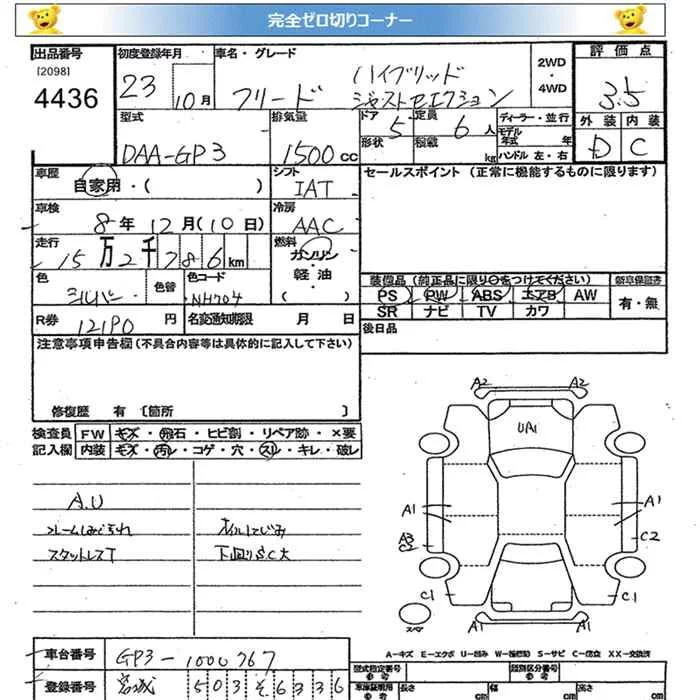 完全ゼロ切りコーナー
出品番号 初度登録年月 車名・グレード 2WD・4WD 評価点
[2098]
4436 23 10月 フリード ハイブリッド ジャストセレクション 3.5
型式 排気量 ドア 定員 ディーラー・並行 外装 内装
DAA-GP3 1500cc 5 6人 モデル年式 年 D C
形状 積載 kg ハンドル 左・右
車歴 自家用・( ) シフト IAT セールスポイント(正常に機能するものに限ります)
車検 8年12月(10日) 冷房 AAC
走行 15万2千786km 燃料 ガソリン・軽油・( )
色 シルバー 色替 色コード NH704
装備品(純正品に限り○をつけてください) 新車保証書
PS PW ABS エアB AW 有・無
SR ナビ TV カワ
R券 12190円 名変通知期限 月 日
後日品
注意事項申告欄(不具合内容等は具体的に記入して下さい)
修復歴 有[箇所 ]
検査員記入欄 FW キズ・飛石・ヒビ割・リペア跡・×要
内装 キズ・汚れ・コゲ・穴・スレ・キレ・破レ
A.U
スタットレスT 下廻りS.C大
オイルにじみ
A2 A2
UA1
A1 A1
A3 C2
C2
C1 C1
スペア A1 A1
A-キズ E-エクボ U-凹み W-補修跡 S-サビ C-腐食 XX-交換済
車台番号 GP3-1000767
型式指定番号 類別区分番号
登録番号 宮城 503 そ 6336
車庫証明用参考 長さ cm 幅 cm 高さ cm